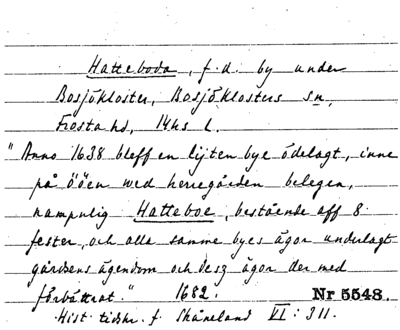 Hatteboda, f. d. by under
Bosjökloster, Bosjöklosters sn,
Frosta hd, Mhs l.
"Anno 1638 bleff en lijten bye ödelagt, inne
på ööen wed herregården belegen,
nampnlig Hatteboe, bestående aff 8
fester, och alla samme byes ägor underlagt
gårdsens ägendom och desz ägor der med
förbättrat." 1682. Nr 5548.
Hist. tidskr. f. Skåneland VI: 311.